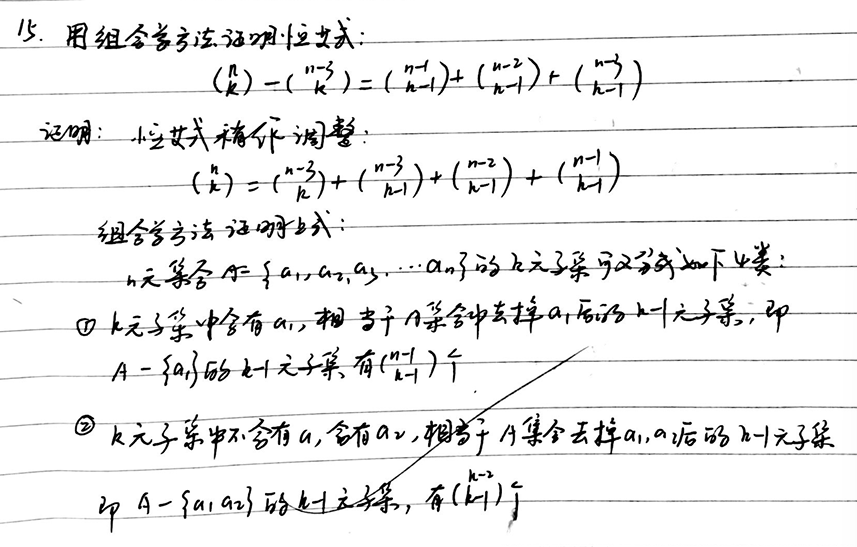 15. 用组合学方法证明恒等式:
(n k) - (n-3 k) = (n-1 k-1) + (n-2 k-1) + (n-3 k-1)
证明: 恒等式稍作调整:
(n k) = (n-3 k) + (n-3 k-1) + (n-2 k-1) + (n-1 k-1)
组合学方法证明上式:
n元集合 A={a1,a2,a3,…an}的k元子集可以分成如下4类:
① k元子集中含有a1, 相当于A集合中去掉a1后的k-1元子集, 即
A-{a1}的k-1元子集, 有(n-1 k-1)个
② k元子集中不含有a1, 含有a2, 相当于A集合去掉a1,a2后的k-1元子集
即 A-{a1 a2}的k-1元子集, 有(n-2 k-1)个